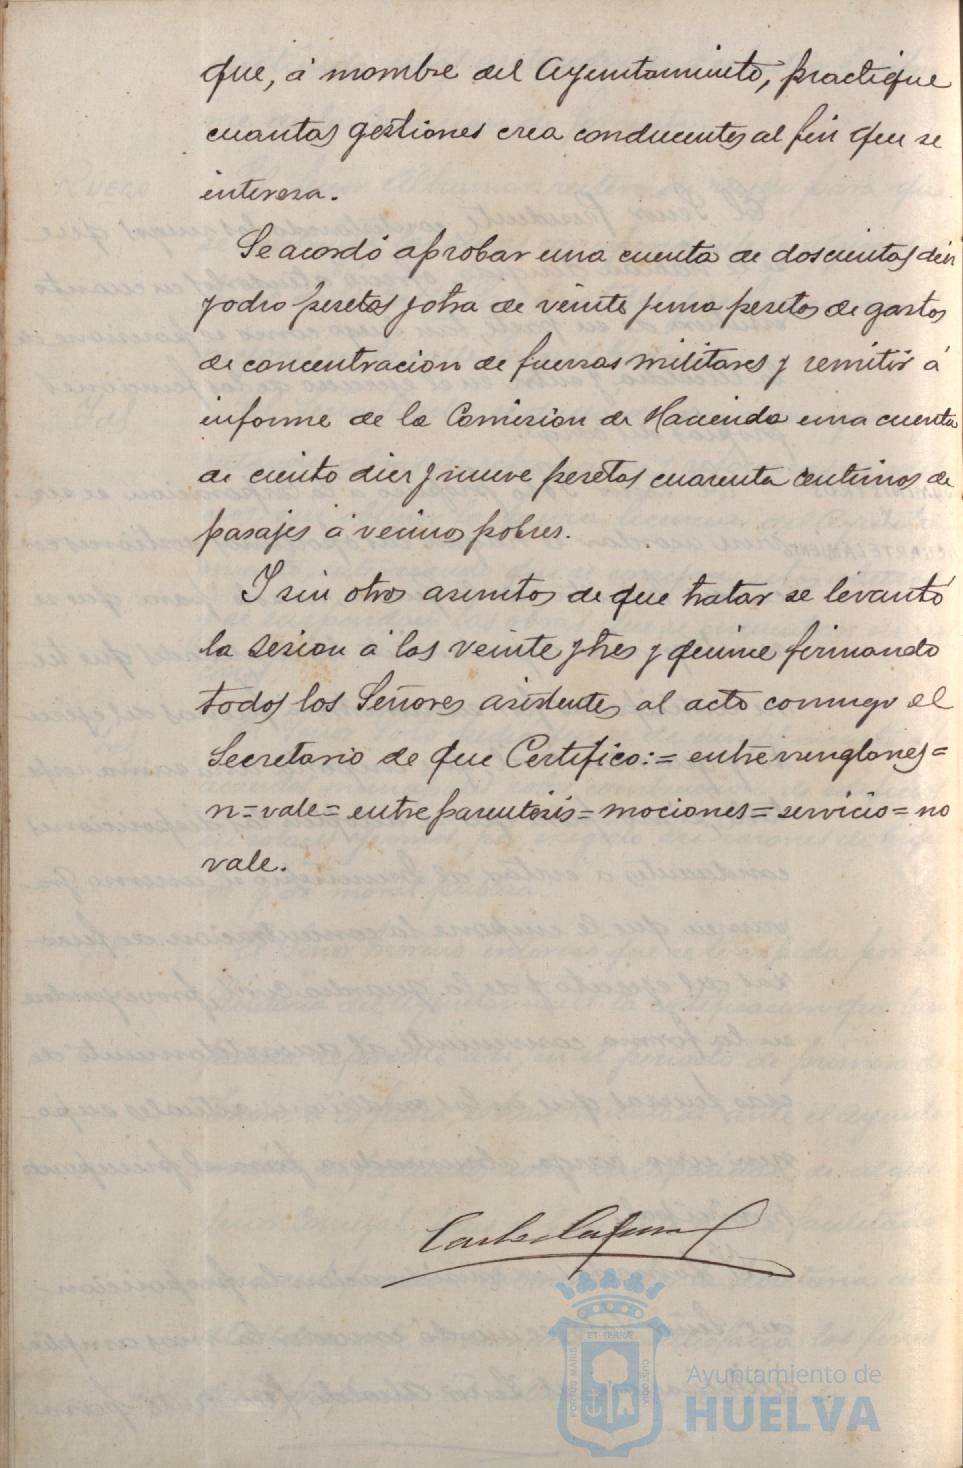 que, á nombre del Ayuntamiento, practique
cuantas gestiones crea conducentes al fin que se
interesa.
Se acordó aprobar una cuenta de doscientas diez
y ocho pesetas y otra de veinte y una pesetas de gastos
de concentracion de fuerzas militares y remitir á
informe de la Comision de Hacienda una cuenta
de ciento diez y nueve pesetas cuarenta centimos de
pasajes á vecinos pobres.
Y sin otros asuntos de que tratar se levantó
la sesion á las veinte y tres y quince firmando
todos los Señores asistentes al acto conmigo el
Secretario de que Certifico:= entre renglones=
n=vale= entre parentesis= mociones= servicio= no
vale.
Ayuntamiento de
HUELVA
PORTUS MARIS
ET TERRAE
CUSTODIA